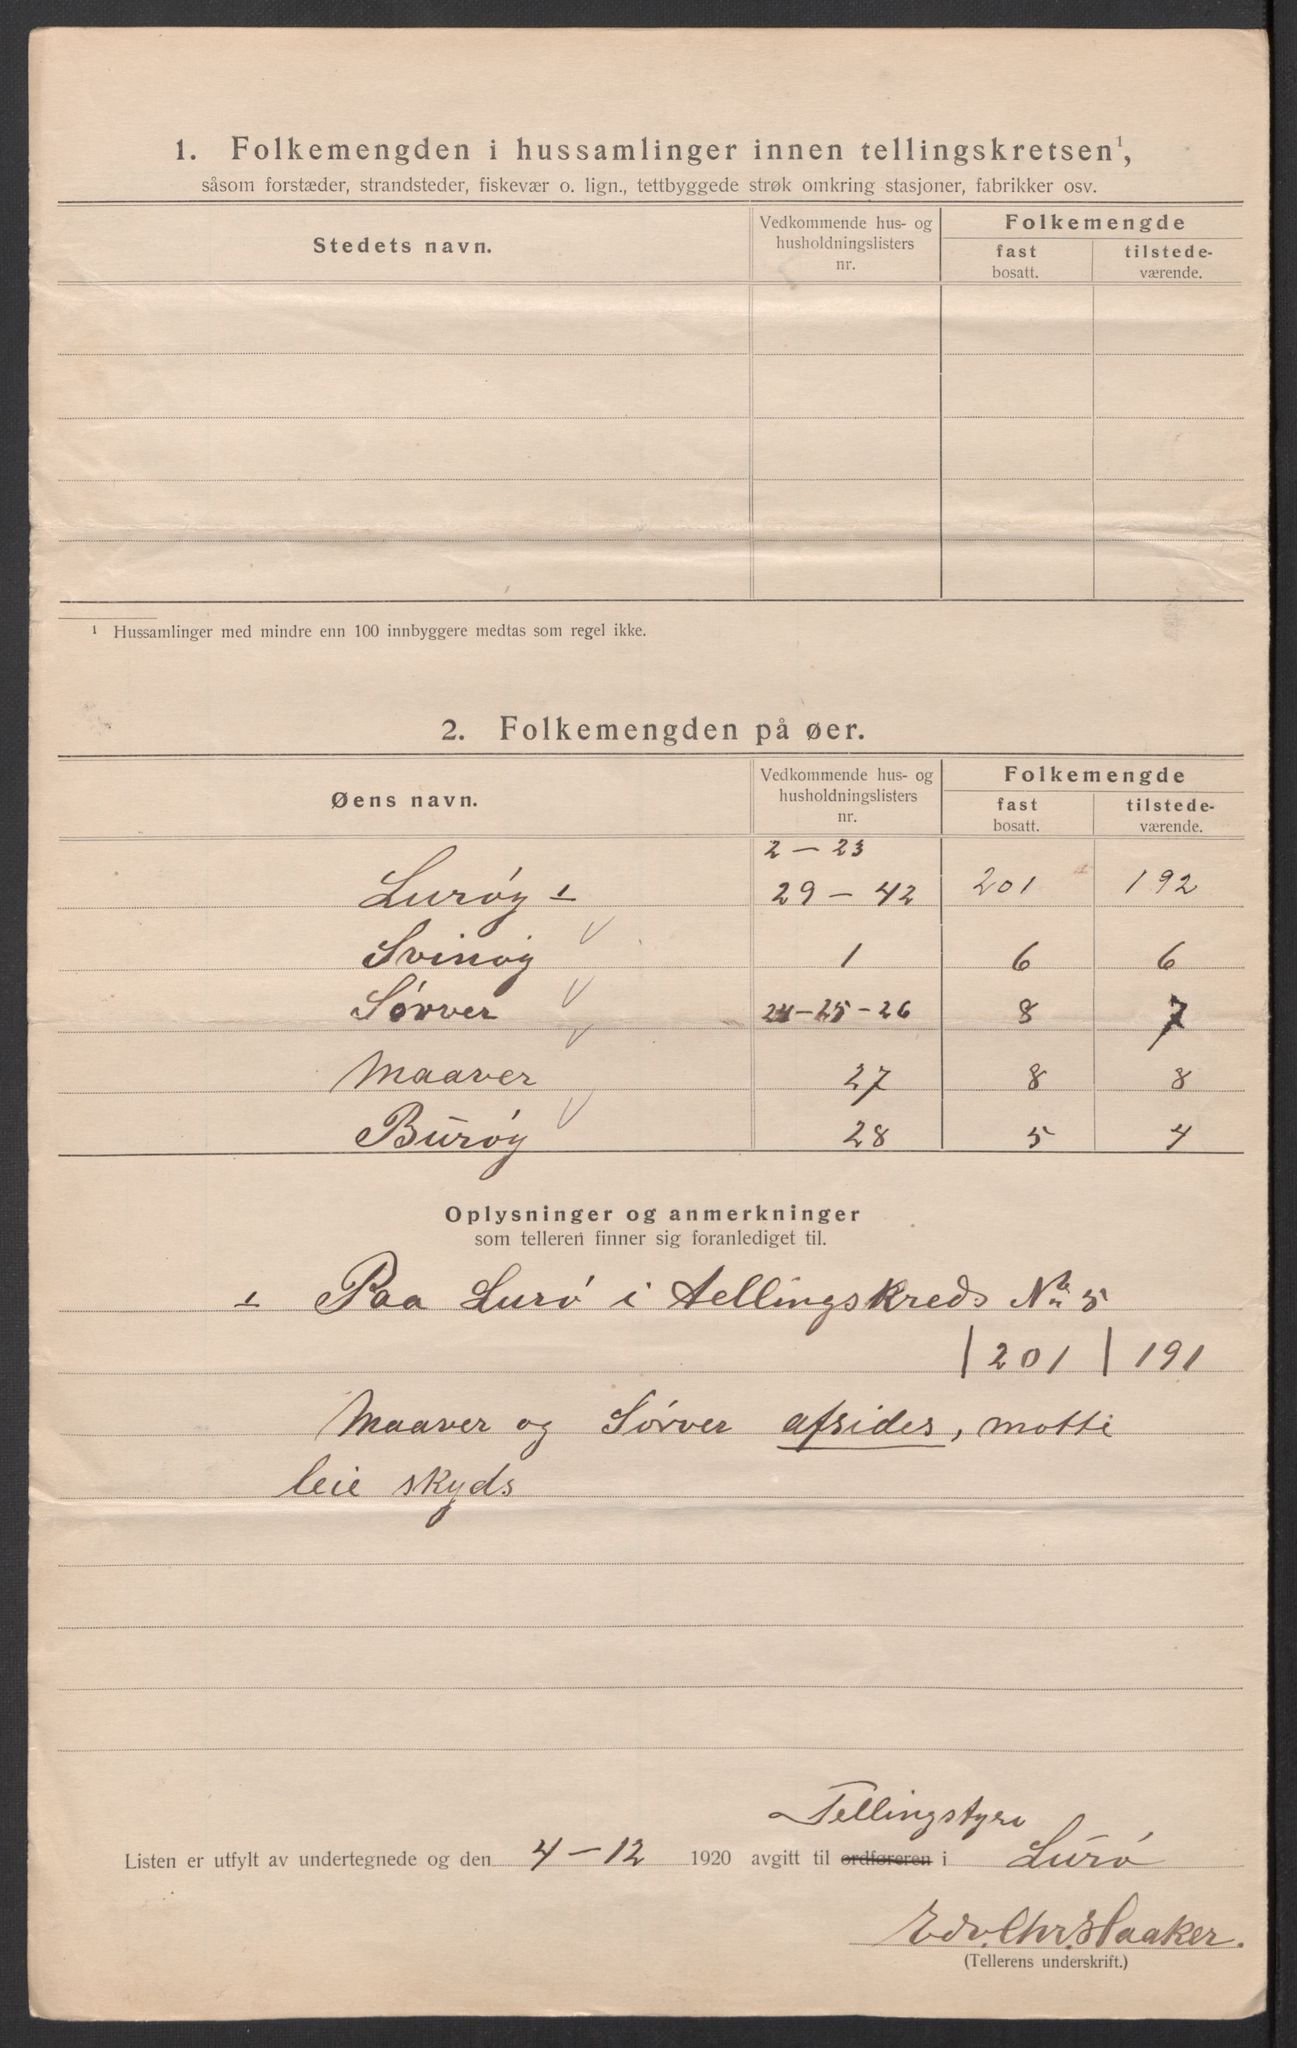 1. Folkemengden i hussamlinger innen tellingskretsen¹,
såsom forstæder, strandsteder, fiskevær o. lign., tettbyggede strøk omkring stasjoner, fabrikker osv.
Stedets navn.
Vedkommende hus- og
husholdningslisters
nr.
Folkemengde
fast
bosatt.
tilstede-
værende.
¹ Hussamlinger med mindre enn 100 innbyggere medtas som regel ikke.
2. Folkemengden på øer.
Øens navn.
Vedkommende hus- og
husholdningslisters
nr.
Folkemengde
fast
bosatt.
tilstede-
værende.
2 — 23
Lurøy 1 29 — 42 201 192
Svinøy 1 6 6
Sørver 24 — 25 — 26 8 7
Maaver 27 8 8
Burøy 28 5 4
Oplysninger og anmerkninger
som telleren finner sig foranlediget til.
1 Paa Lurø i tellingskreds No 5
| 201 | 191
Maaver og Sørver afsides, motte
leie skyds
Tellingstyre
Listen er utfylt av undertegnede og den 4 — 12 1920 avgitt til ordføreren i Lurø
Edv. Chr. Haaker.
(Tellerens underskrift.)